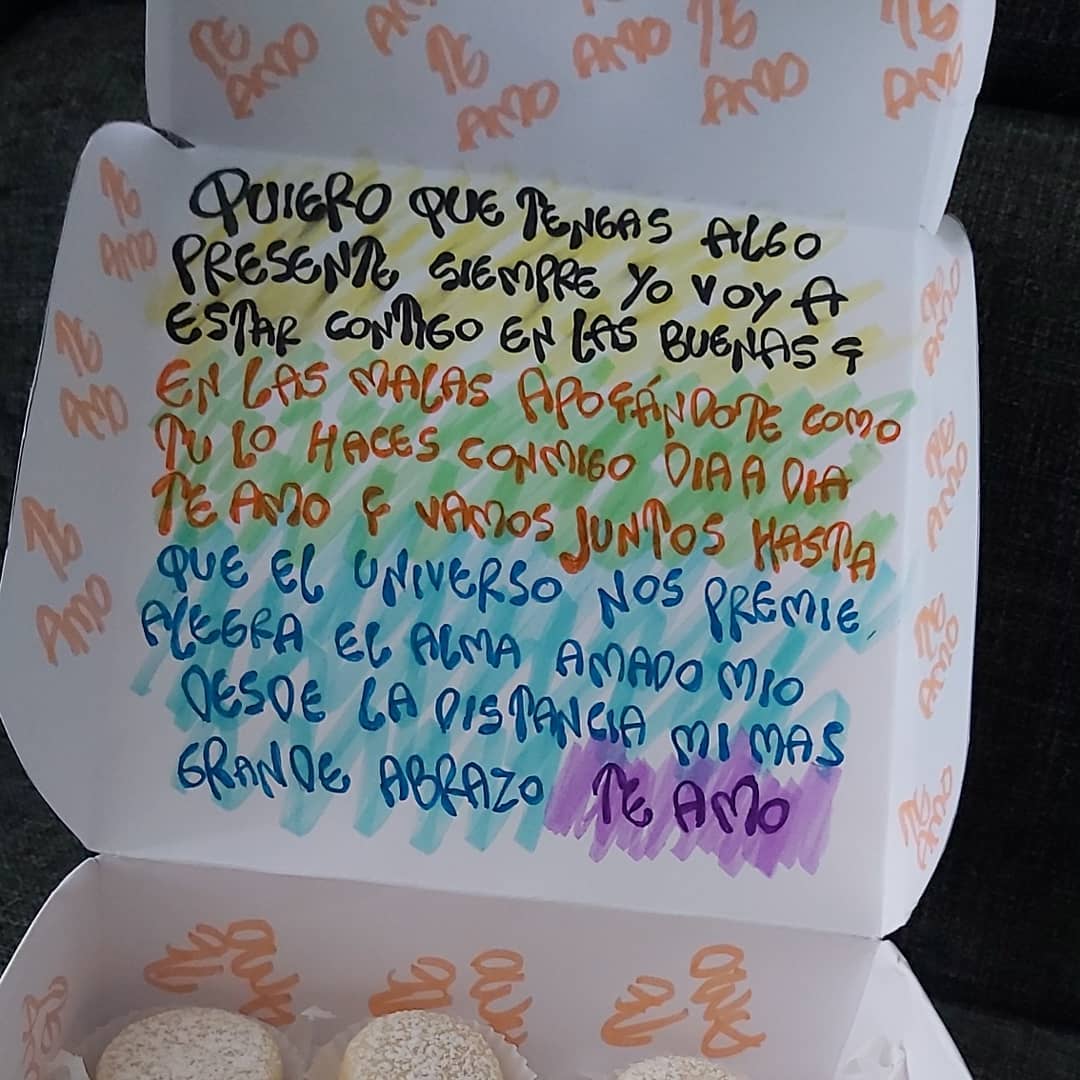 TE AMO
AMO
TE AMO
AMO
TE AMO
TE AMO
QUIERO QUE TENGAS ALGO
PRESENTE SIEMPRE YO VOY A
ESTAR CONTIGO EN LAS BUENAS Y
EN LAS MALAS APOYÁNDOTE COMO
TU LO HACES CONMIGO DIA A DIA
TE AMO Y VAMOS JUNTOS HASTA
QUE EL UNIVERSO NOS PREMIE
ALEGRA EL ALMA AMADO MIO
DESDE LA DISTANCIA MI MAS
GRANDE ABRAZO TE AMO
TE AMO
TE AMO
TE AMO
TE AMO
TE AMO
TE AMO
TE AMO
TE AMO
TE AMO
TE AMO